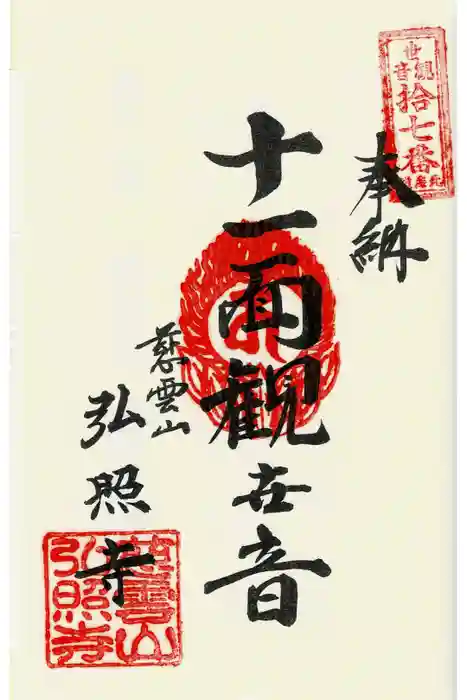 世観音
拾七番
奉納
十一面観世音
慈雲山
弘照寺
慈雲山
弘照寺